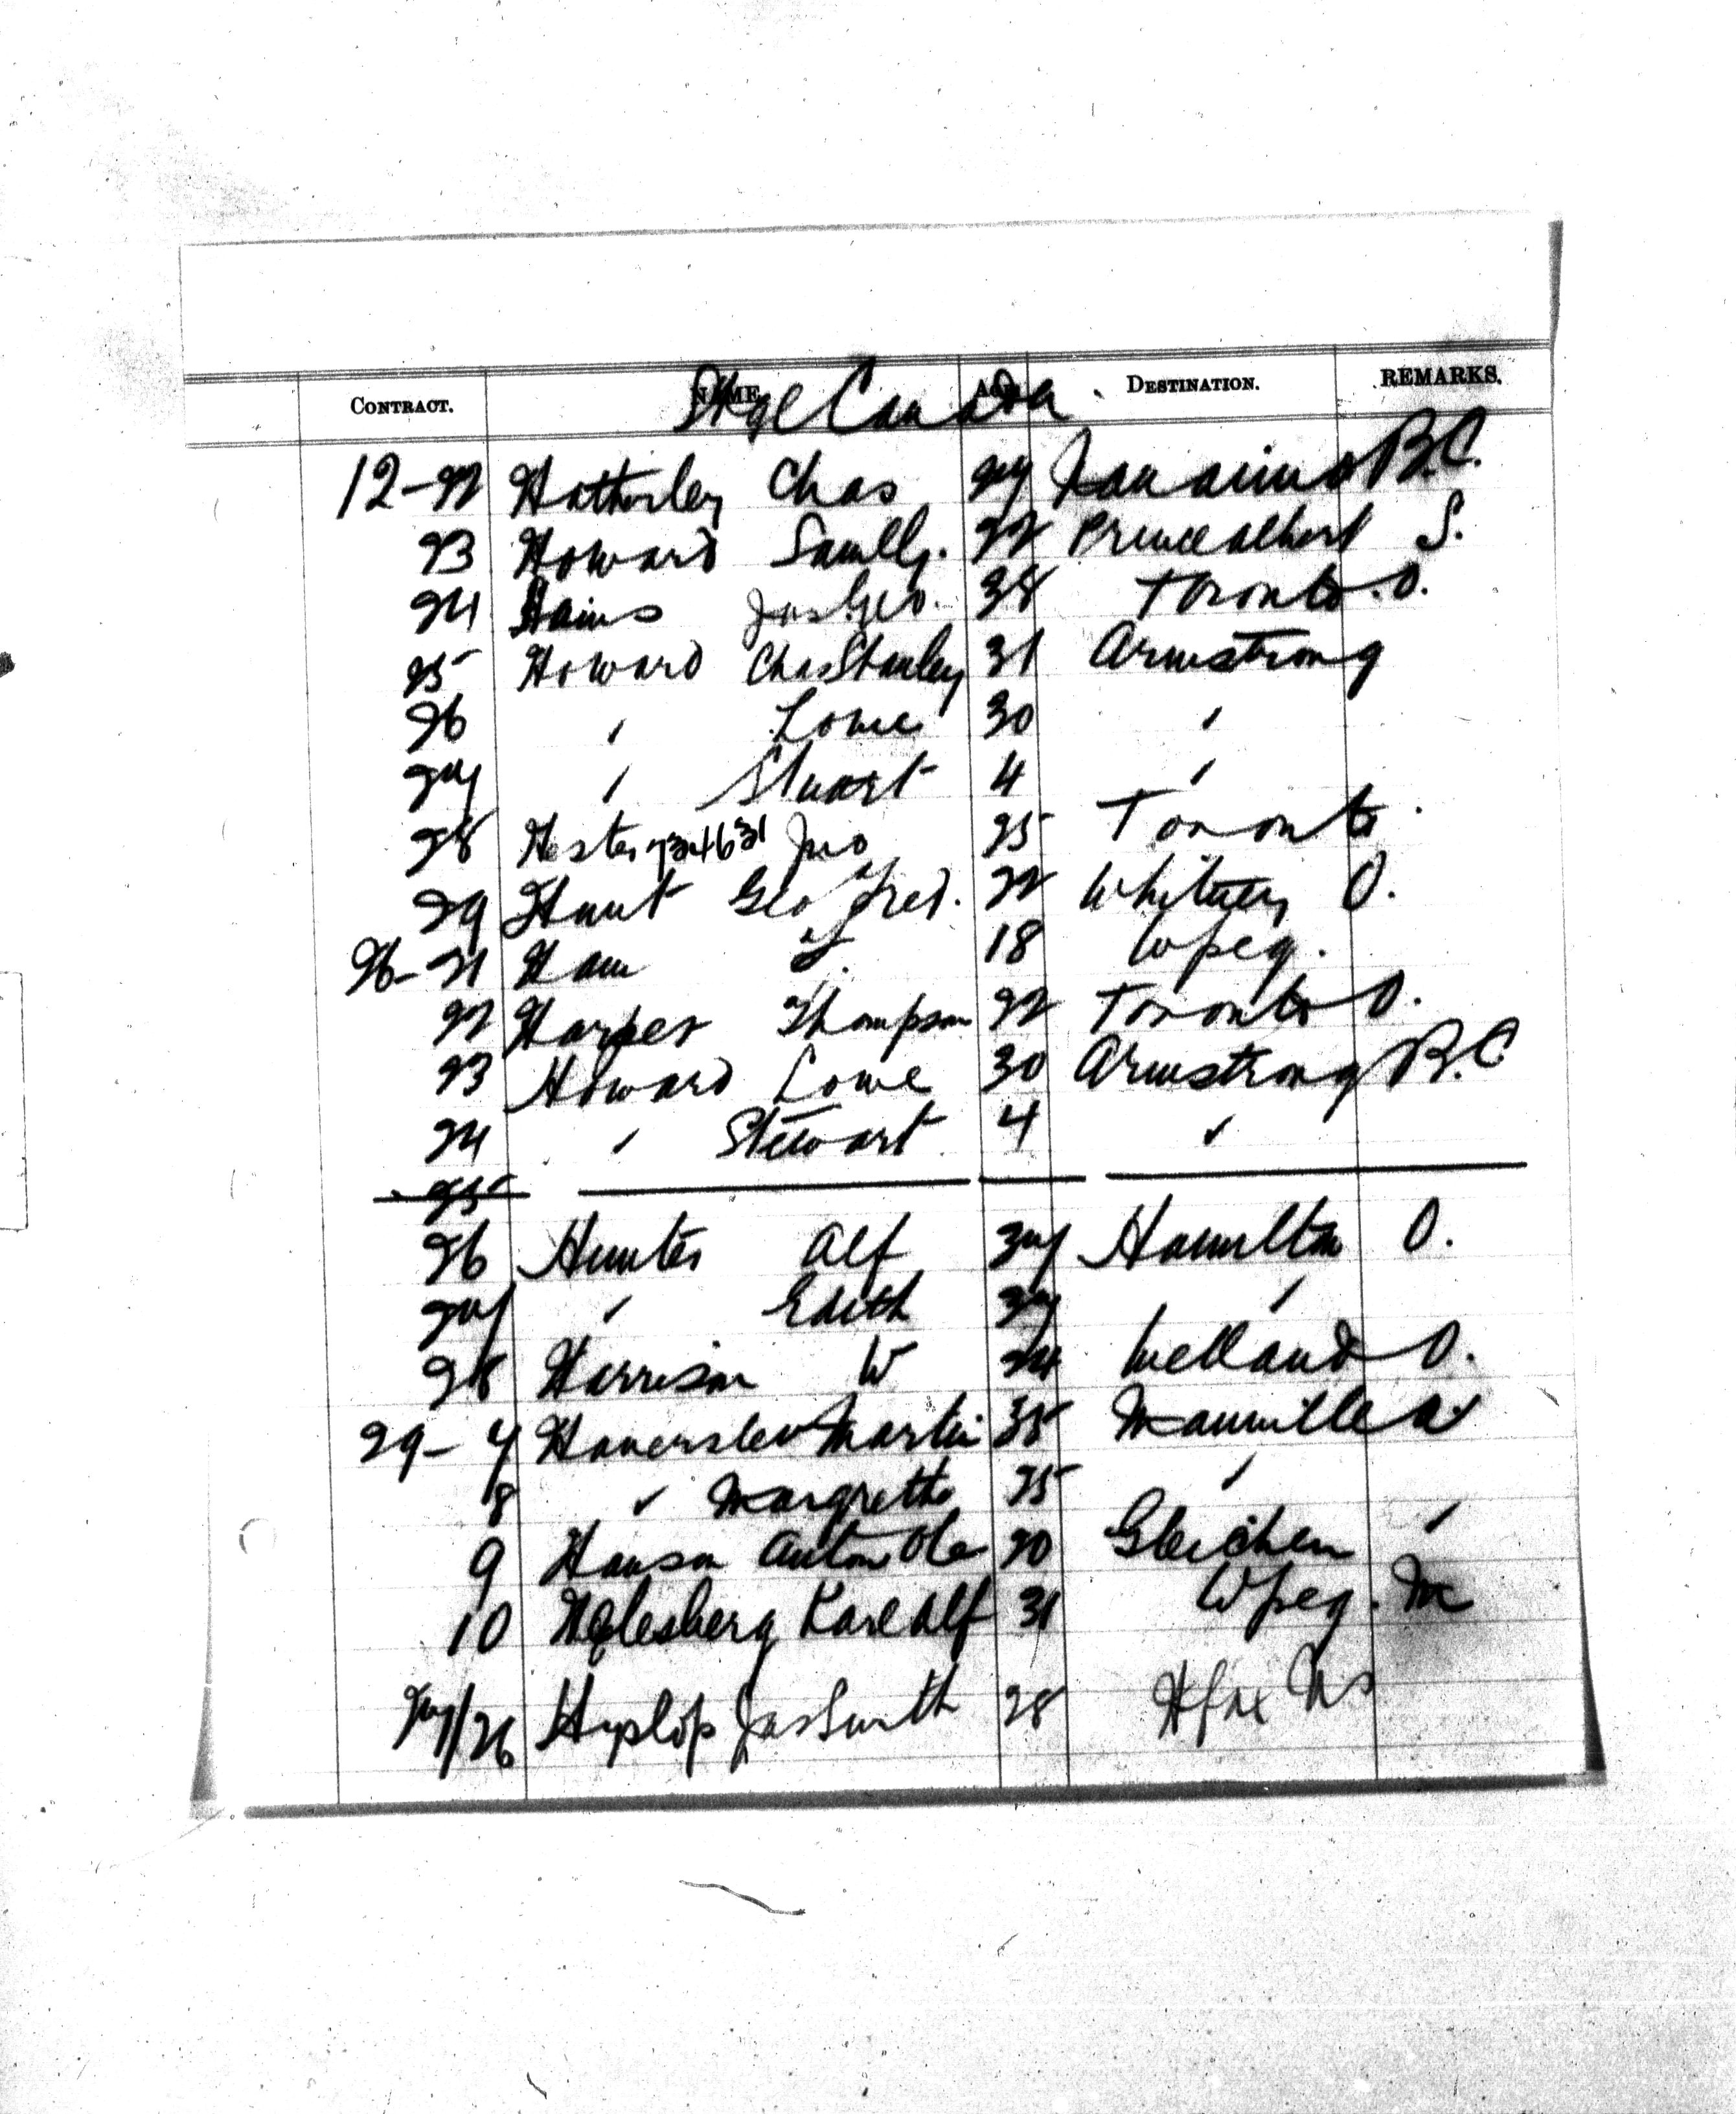 CONTRACT. NAME AGE DESTINATION. REMARKS.
Stge Canada
12-22 Hatherley Chas 27 Nanaimo B.C.
23 Howard Saml G. 22 Prince Albert S.
24 Hains Jas Geo. 38 Toronto. O.
25 Howard Chas Stanley 31 Armstrong
26 " Lowe 30 "
27 " Stuart 4 "
28 Hester Jno 25 Toronto.
29 Hunt Geo Fred. 22 Whitney O.
26-21 Ham 18 Wpeg.
22 Harper Thompson 22 Toronto O.
23 Howard Lowe 30 Armstrong B.C
24 " Stewart 4 "
25
26 Hunter Alf 37 Hamilton O.
27 " Edith 37 "
28 Harrison W 24 Welland O.
29-7 Haverslev Martin 35 Mannville A
8 " Margrethe 25 "
9 Hanson Anton Ole 20 Gleichen "
10 Karl Alf 31 Wpeg. M
27/26 Hyslop Jas Smith 28 Hfax NS